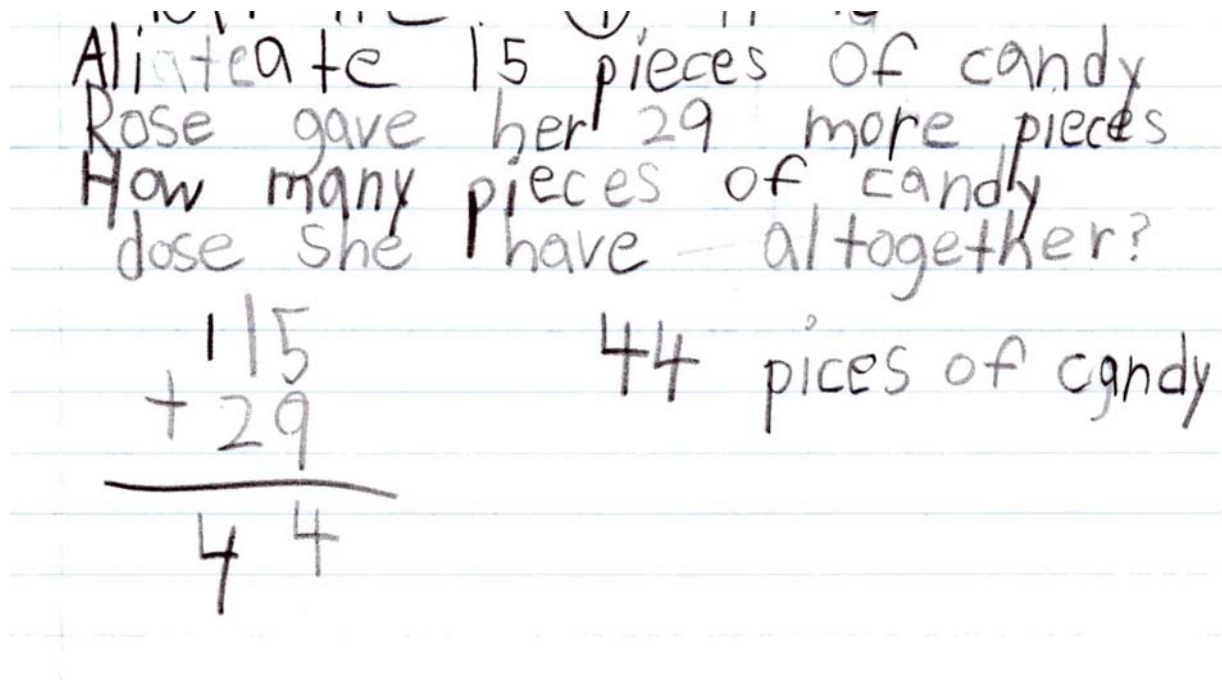 ate 15 pieces of candy
Rose gave her 29 more pieces
How many pieces of candy
dose she have altogether?
1 15
+ 29
4 4
44 pices of candy